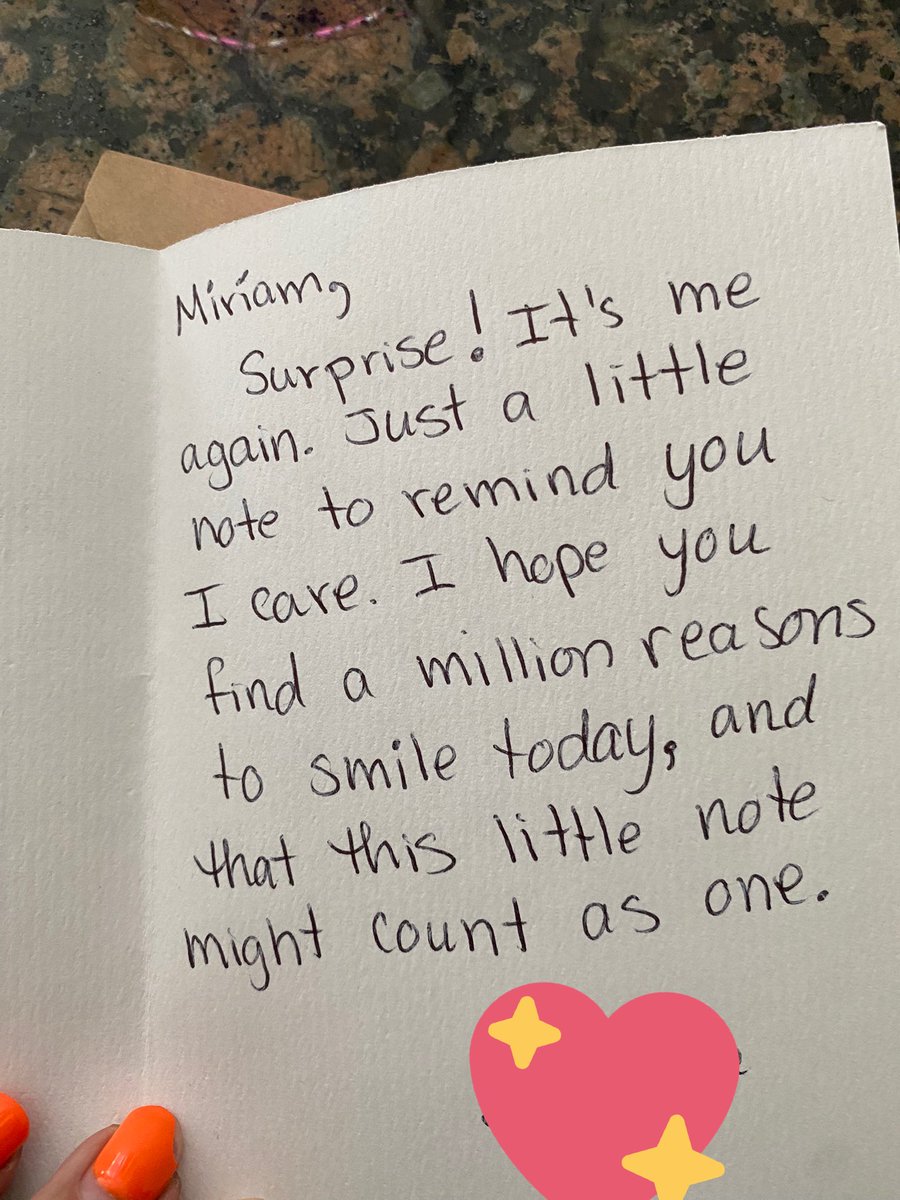 Miriam,
Surprise! It's me
again. Just a little
note to remind you
I care. I hope you
find a million reasons
to smile today, and
that this little note
might count as one.